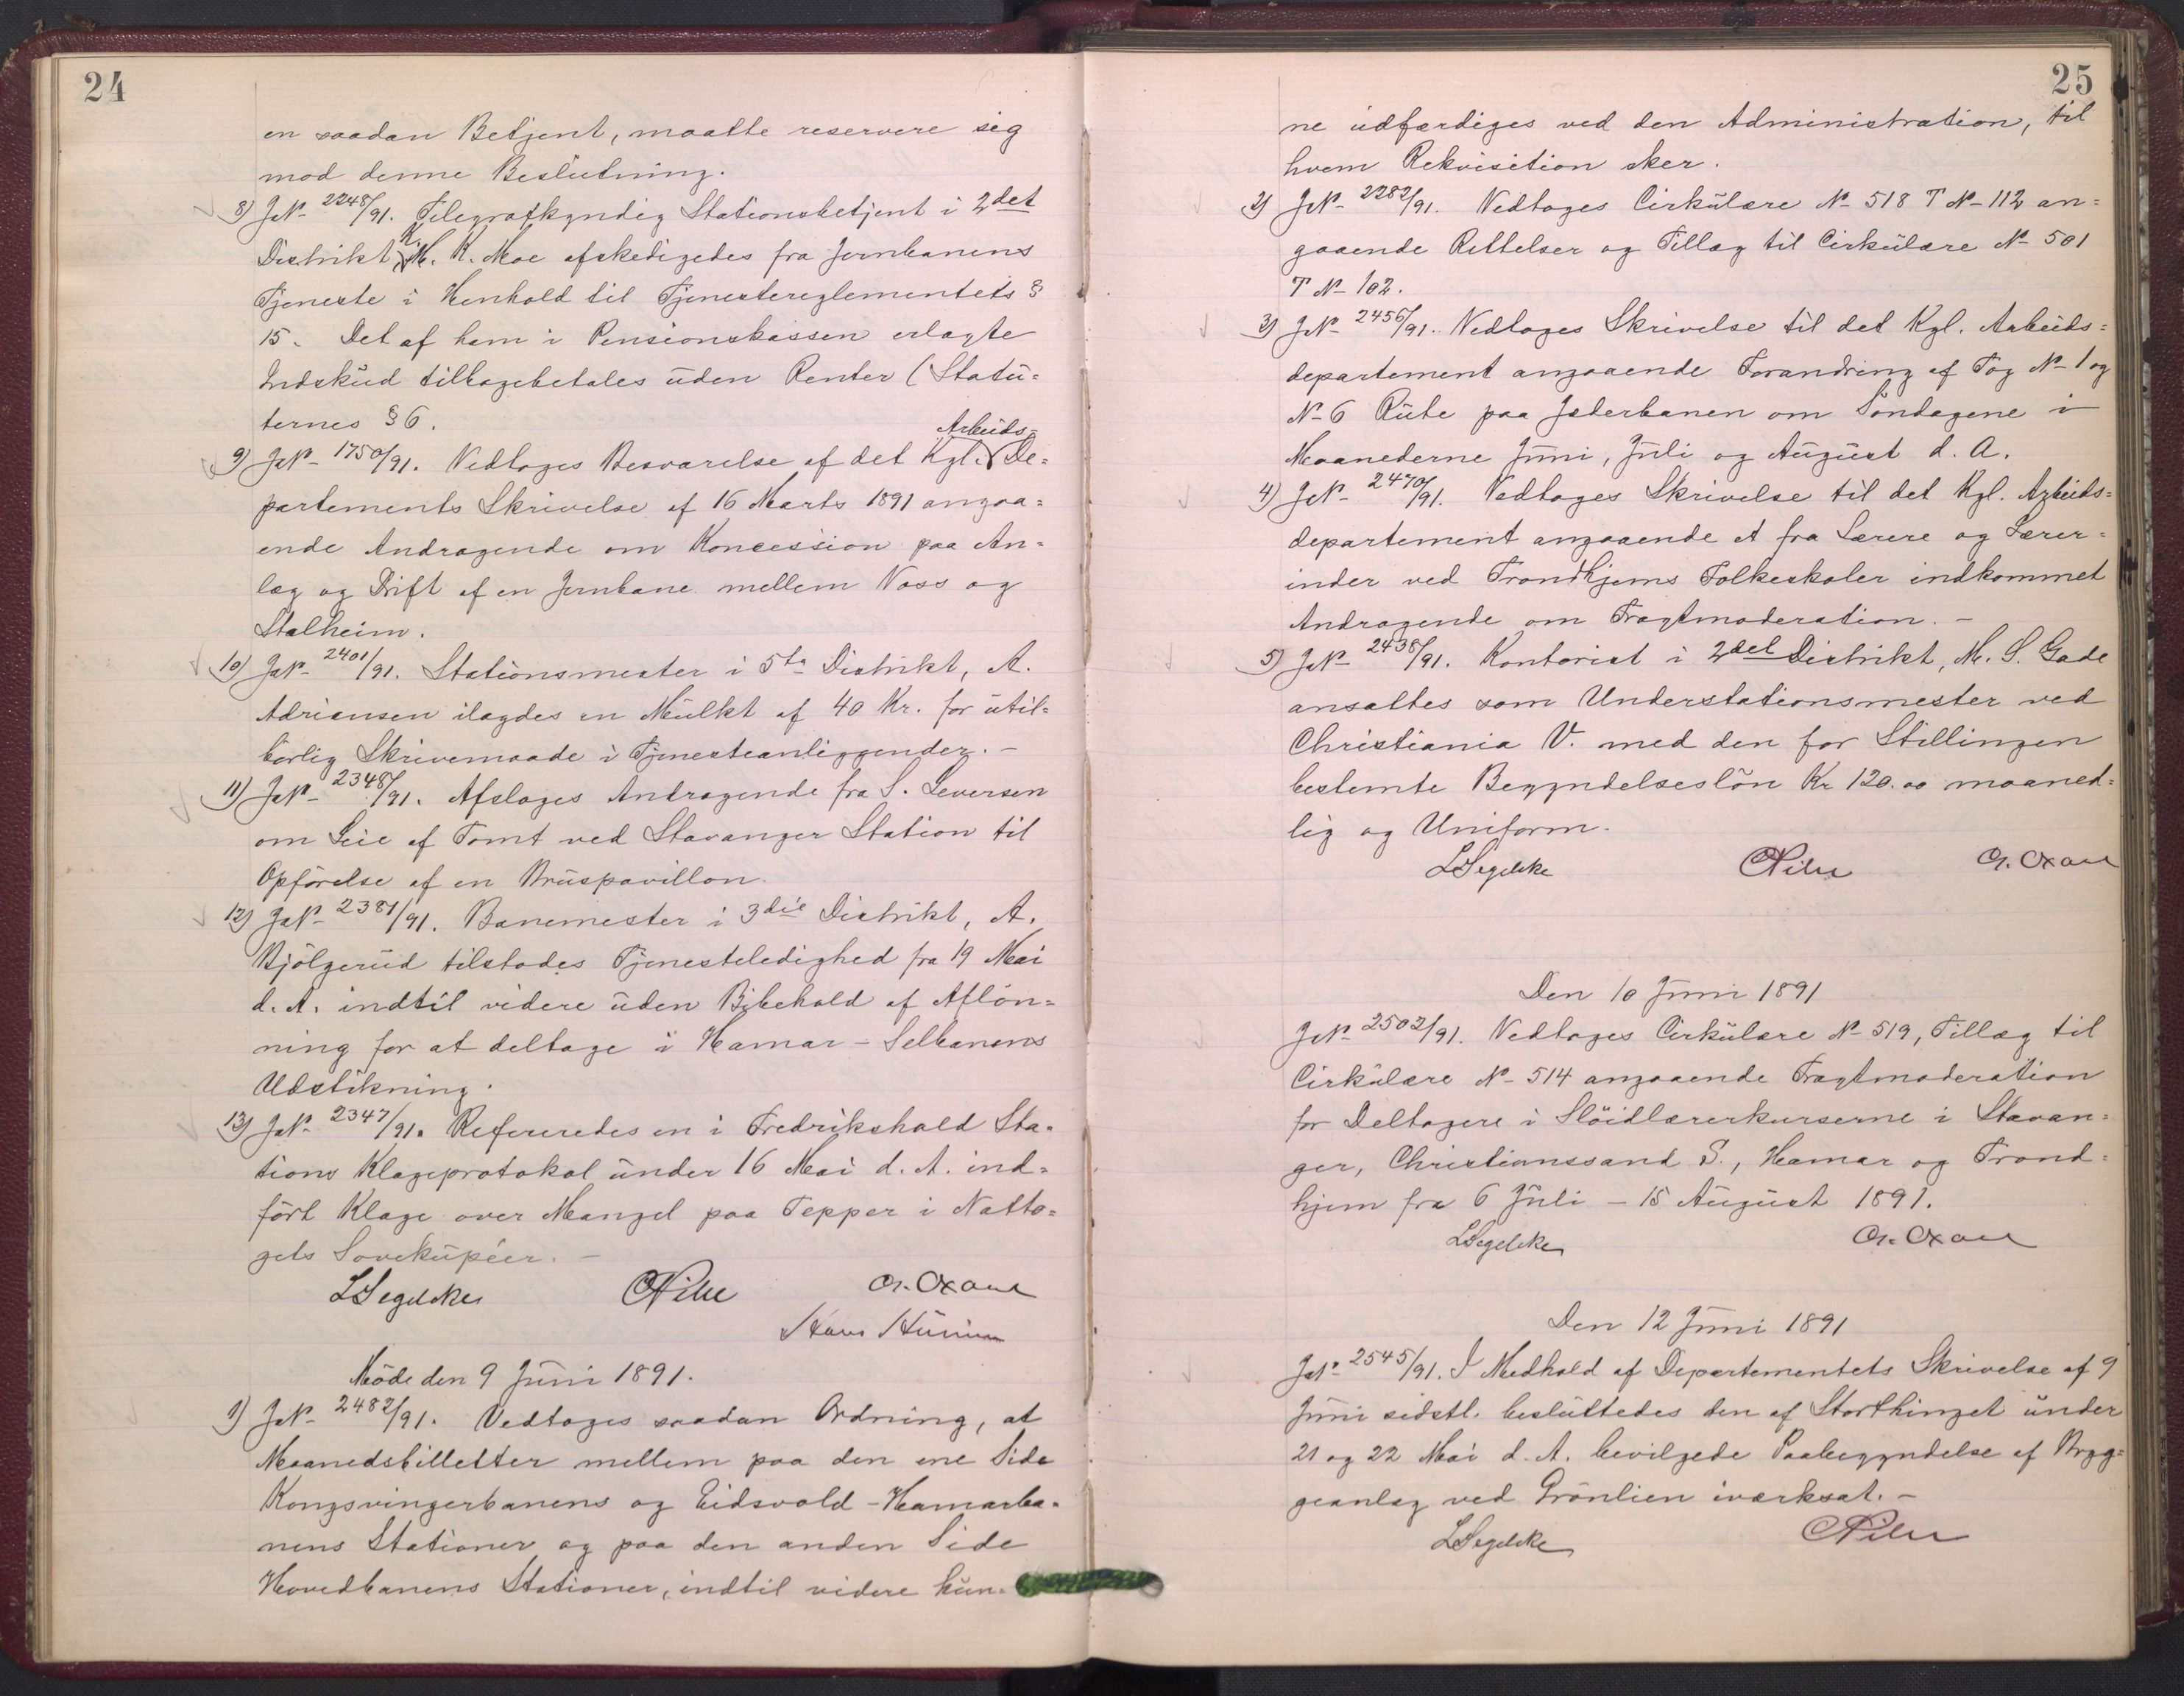 24
en saadan Betjent, maatte reservere sig
mod denne Beslutning.
8) JN- 2248/91. Telegrafkyndig Stationsbetjent i 2det
Distrikt K. M. K. Moe afskedigedes fra Jernbanens
Tjeneste i Henhold til Tjenestereglementets §
15. Det af ham i Pensionskassen erlagte
Indskud tilbagebetales uden Renter (Statu=
ternes § 6.
9) JN- 1750/91. Vedtoges Besvarelse af det Kgl. Arbeids= De=
partements Skrivelse af 16 Marts 1891 angaa=
ende Andragende om Koncession paa An=
læg og Drift af en Jernbane mellem Voss og
Stalheim.
10) JN- 2401/91. Stationsmester i 5te Distrikt, A.
Adriansen ilagdes en Mulkt af 40 Kr. for util=
børlig Skrivemaade i Tjenesteanliggender. -
11) JN- 2348/91. Afsloges Andragende fra S. Seversen
om Leie af Tomt ved Stavanger Station til
Opførelse af en Bruspavillon.
12) JN- 2381/91. Banemester i 3die Distrikt, A.
Bjölgerud tilstodes Tjenesteledighed fra 19 Mai
d. A. indtil videre uden Bibehold af Aflön=
ning for at deltage i Hamar - Selbanens
Udstikning.
13) JN- 2347/91. Refereredes en i Fredrikshald Sta=
tions Klageprotokol under 16 Mai d. A. ind=
fört Klage over Mangel paa Tepper i Natto=
gets Sovekupéer. -
LSegelcke CPihl
Möde den 9 Juni 1891.
1) JN- 2482/91. Vedtoges saadan Ordning, at
Maanedsbilletter mellem paa den ene Side
Kongsvingerbanens og Eidsvold - Hamarba=
nens Stationer og paa den anden Side
Hovedbanens Stationer, indtil videre kun=
25
ne udfærdiges ved den Administration, til
hvem Rekvisition sker.
2) JN- 2282/91. Vedtoges Cirkulære N- 518 T N- 112 an=
gaaende Rettelser og Tillæg til Cirkulære N- 501
T N- 102.
3) JN- 2456/91. Vedtoges Skrivelse til det Kgl. Arbeids=
departement angaaende Forandring af Tog N- 1 og
N- 6 Rute paa Jæderbanen om Söndagene i
Maanederne Juni, Juli og August d. A.
4) JN- 2470/91. Vedtoges Skrivelse til det Kgl. Arbeids=
departement angaaende et fra Lærere og Lærer=
inder ved Trondhjems Folkeskoler indkommet
Andragende om Fragtmoderation. -
5) JN- 2438/91. Kontorist i 2det Distrikt, M. S. Gade
ansattes som Understationsmester ved
Christiania V. med den for Stillingen
bestemte Begyndelseslön Kr 120.00 maaned=
lig og Uniform.
LSegelcke CPihl
Den 10 Juni 1891
JN- 2502/91. Vedtoges Cirkulære N- 519, Tillæg til
Cirkulære N- 514 angaaende Fragtmoderation
for Deltagere i Slöidlærerkurserne i Stavan=
ger, Christianssand S., Hamar og Trond=
hjem fra 6 Juli - 15 August 1891.
LSegelcke
Den 12 Juni 1891
JN- 2545/91. I Medhold af Departementets Skrivelse af 9
Juni sidstl. besluttedes den af Storthinget under
21 og 22 Mai d. A. bevilgede Paabegyndelse af Bryg=
geanlæg ved Grönlien iværksat. -
LSegelcke CPihl